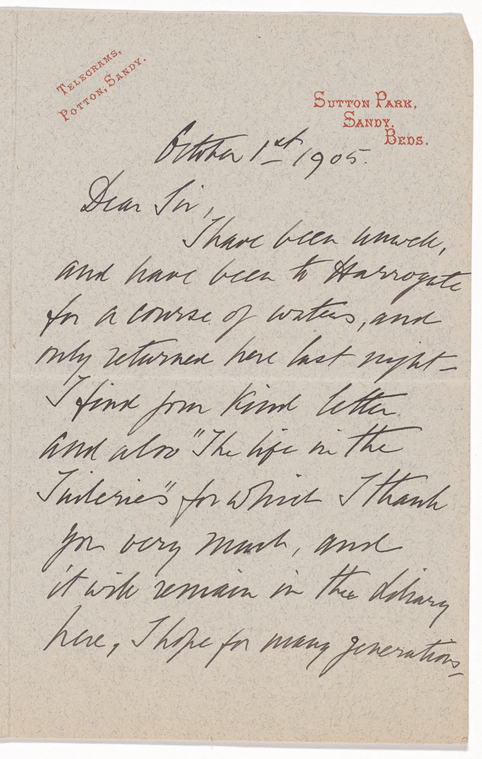 Telegrams,
Potton, Sandy.
Sutton Park,
Sandy.
Beds.
October 1st 1905.
Dear Sir,
I have been unwell,
and have been to Harrogate
for a course of waters, and
only returned here last night -
I find your kind letter
and also "The life in the
Tuileries" for which I thank
you very much, and
it will remain in the Library
here, I hope for many generations